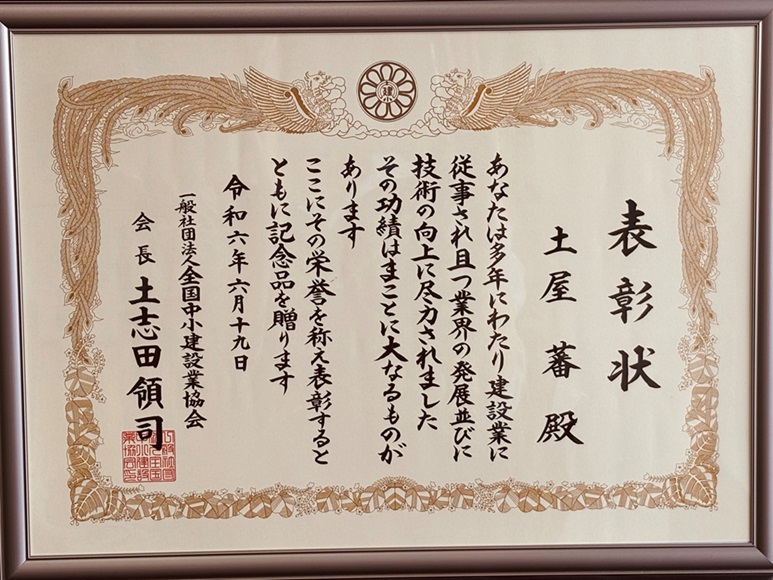 表彰状
土屋 蕃 殿
あなたは多年にわたり建設業に
従事され且つ業界の発展並びに
技術の向上に尽力されました
その功績はまことに大なるものが
あります
ここにその栄誉を称え表彰すると
ともに記念品を贈ります
令和六年六月十九日
一般社団法人全国中小建設業協会
会長 土志田領司